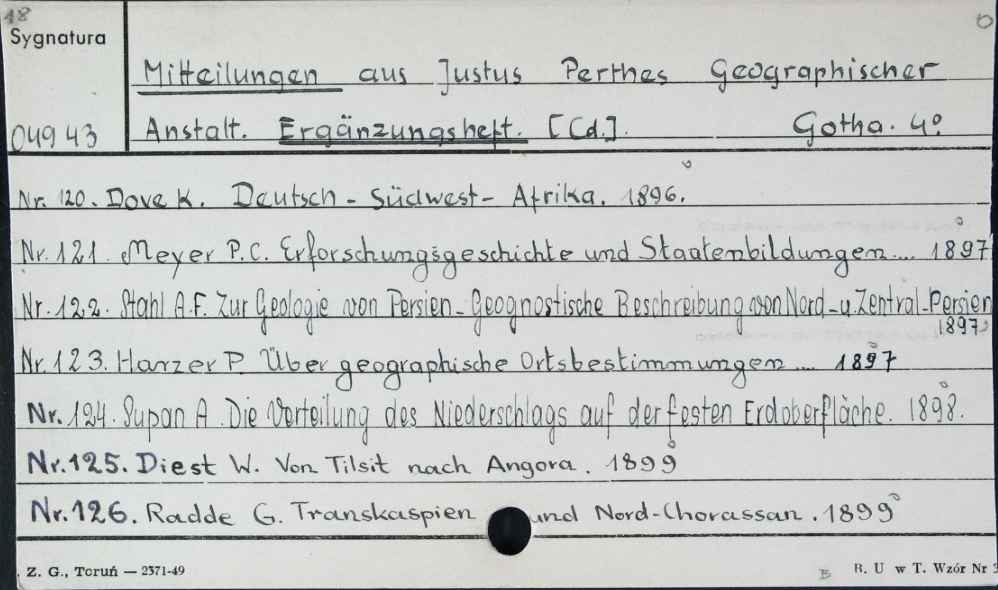 18
Sygnatura
Mitteilungen aus Justus Perthes Geographischer
04943 Anstalt. Ergänzungsheft. [Cd.]. Gotha. 4°
Nr. 120. Dove K. Deutsch - Südwest - Afrika. 1896.
Nr. 121. Meyer P.C. Erforschungsgeschichte und Staatenbildungen .... 1897
Nr. 122. Stahl A.F. Zur Geologie von Persien - Geognostische Beschreibung von Nord - u. Zentral - Persien
1897
Nr. 123. Harzer P. Über geographische Ortsbestimmungen .... 1897
Nr. 124. Supan A. Die Verteilung des Niederschlags auf der festen Erdoberfläche. 1898.
Nr. 125. Diest W. Von Tilsit nach Angora. 1899
Nr. 126. Radde G. Transkaspien und Nord-Chorassan. 1899
Z. G., Toruń — 2371-49 B. U w T. Wzór Nr